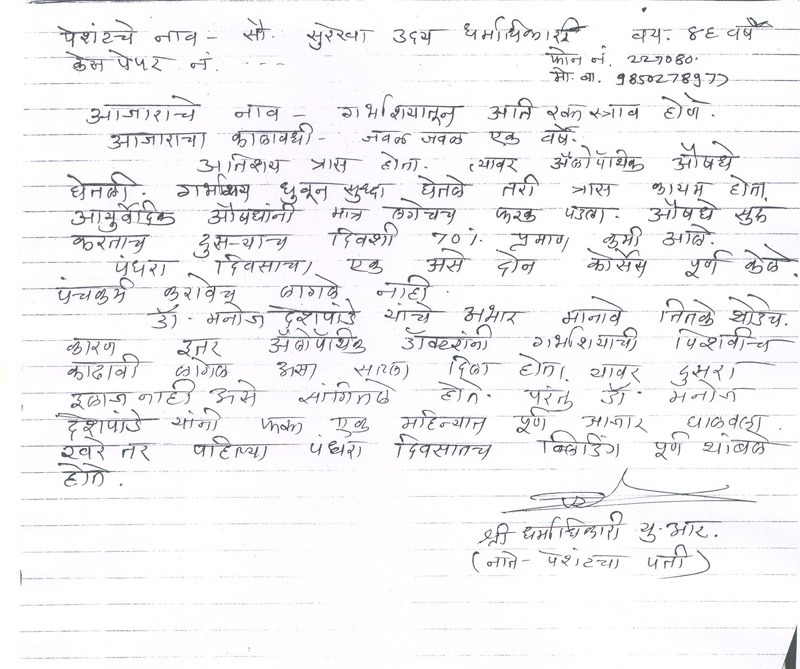 पेशंटचे नाव - सौ. सुरेखा उदय धर्माधिकारी वय. ४६ वर्षे
केस पेपर नं. - - - -
फोन नं. 227080.
मो. बा. 9850278977
आजाराचे नाव - गर्भाशयातून अति रक्त स्त्राव होणे.
आजाराचा कालावधी - जवळ जवळ एक वर्षे.
अतिशय त्रास होता. त्यावर ॲलोपॅथिक औषधे
घेतली. गर्भाशय धुवून सुध्दा घेतले तरी त्रास कायम होता.
आयुर्वेदिक औषधांनी मात्र लगेचच फरक पडला. औषधे सुरू
करताच दुसऱ्याच दिवशी 70% प्रमाण कमी आले.
पंधरा दिवसाचा एक असे दोन कोर्सेस पूर्ण केले.
पंचकर्म करावेच लागले नाही.
डॉ. मनोज देशपांडे यांचे आभार मानावे तितके थोडेच.
कारण इतर ॲलोपॅथिक डॉक्टरांनी गर्भाशयाची पिशवीच
काढावी लागेल असा सल्ला दिला होता. यावर दुसरा
इलाज नाही असे सांगितले होते. परंतु डॉ. मनोज
देशपांडे यांनी फक्त एक महिन्यात पूर्ण आजार घालवला.
खरे तर पहिल्या पंधरा दिवसातच ब्लिडिंग पूर्ण थांबले
होते.
श्री धर्माधिकारी यु. आर.
(नाते - पेशंटचा पती)